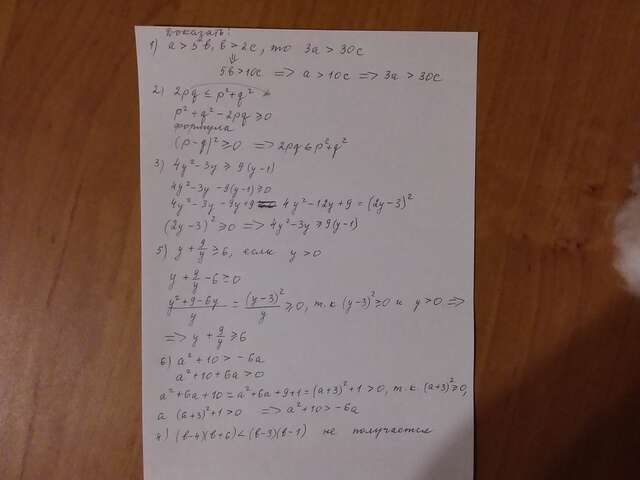 Доказать:
1) a > 5b, b > 2c, то 3a > 30c
⇓
5b > 10c ⇒ a > 10c ⇒ 3a > 30c
2) 2pq ≤ p² + q²
p² + q² - 2pq ≥ 0
формула
(p - q)² ≥ 0 ⇒ 2pq ≤ p² + q²
3) 4y² - 3y ≥ 9(y-1)
4y² - 3y - 9(y-1) ≥ 0
4y² - 3y - 9y + 9 = 4y² - 12y + 9 = (2y-3)²
(2y-3)² ≥ 0 ⇒ 4y² - 3y ≥ 9(y-1)
5) y + 9/y ≥ 6, если y > 0
y + 9/y - 6 ≥ 0
(y² + 9 - 6y)/y = (y-3)²/y ≥ 0, т.к (y-3)² ≥ 0 и y > 0 ⇒
⇒ y + 9/y ≥ 6
6) a² + 10 > -6a
a² + 10 + 6a > 0
a² + 6a + 10 = a² + 6a + 9 + 1 = (a+3)² + 1 > 0, т.к (a+3)² ≥ 0,
а (a+3)² + 1 > 0 ⇒ a² + 10 > -6a
4) (b-4)(b+6) < (b-3)(b-1) не получается